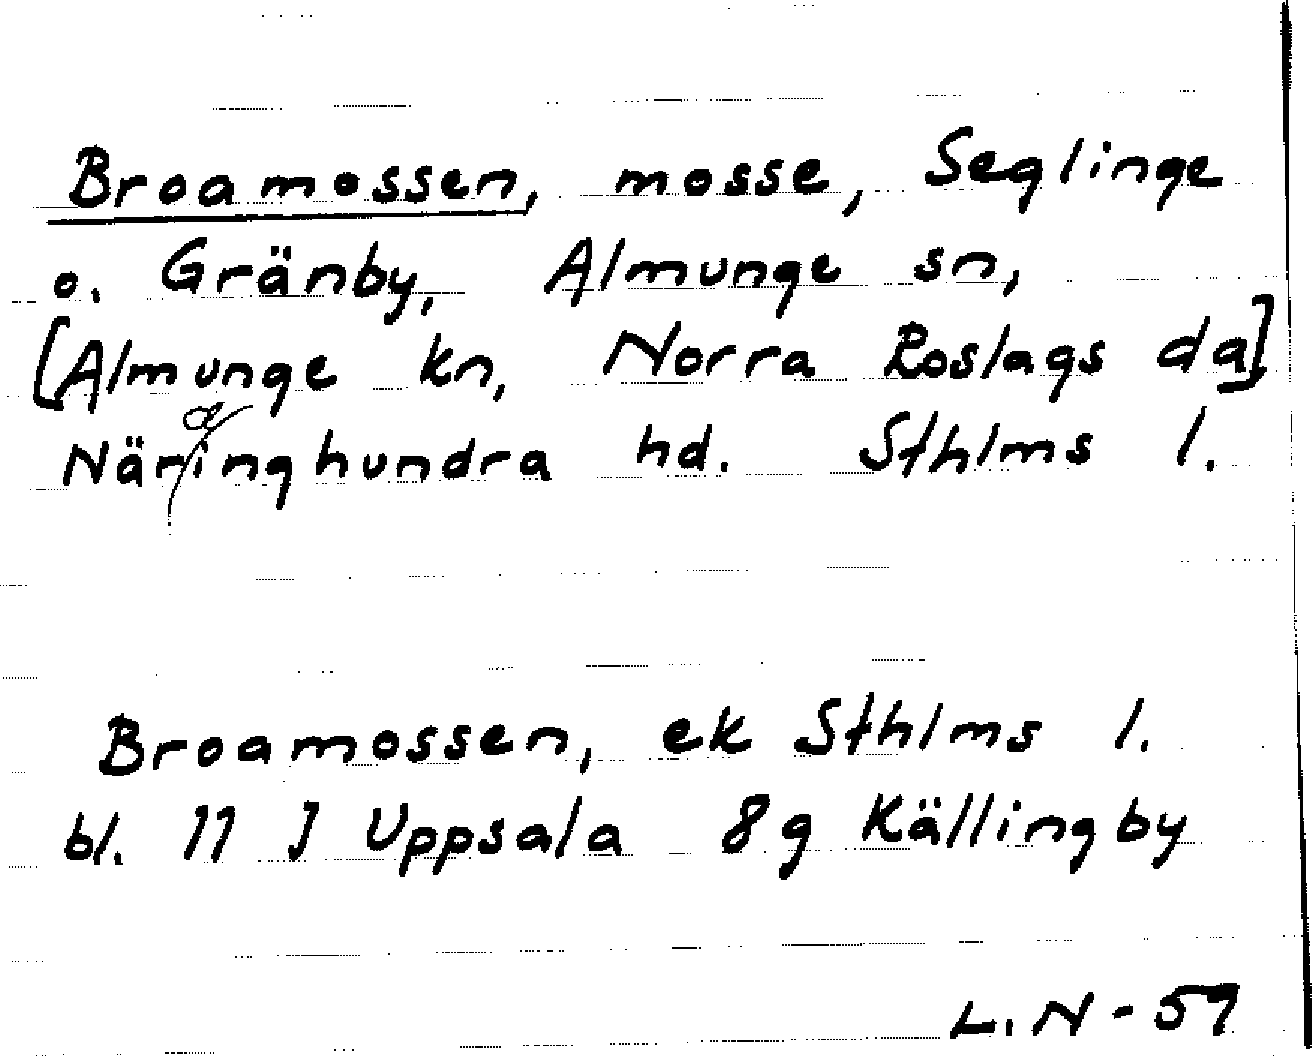 Broamossen, mosse, Seglinge
o. Gränby, Almunge sn,
[Almunge kn, Norra Roslags da]
Närdinghundra hd. Sthlms l.
Broamossen, ek Sthlms l.
bl. 11 J Uppsala 8g Källingby
L.N - 57